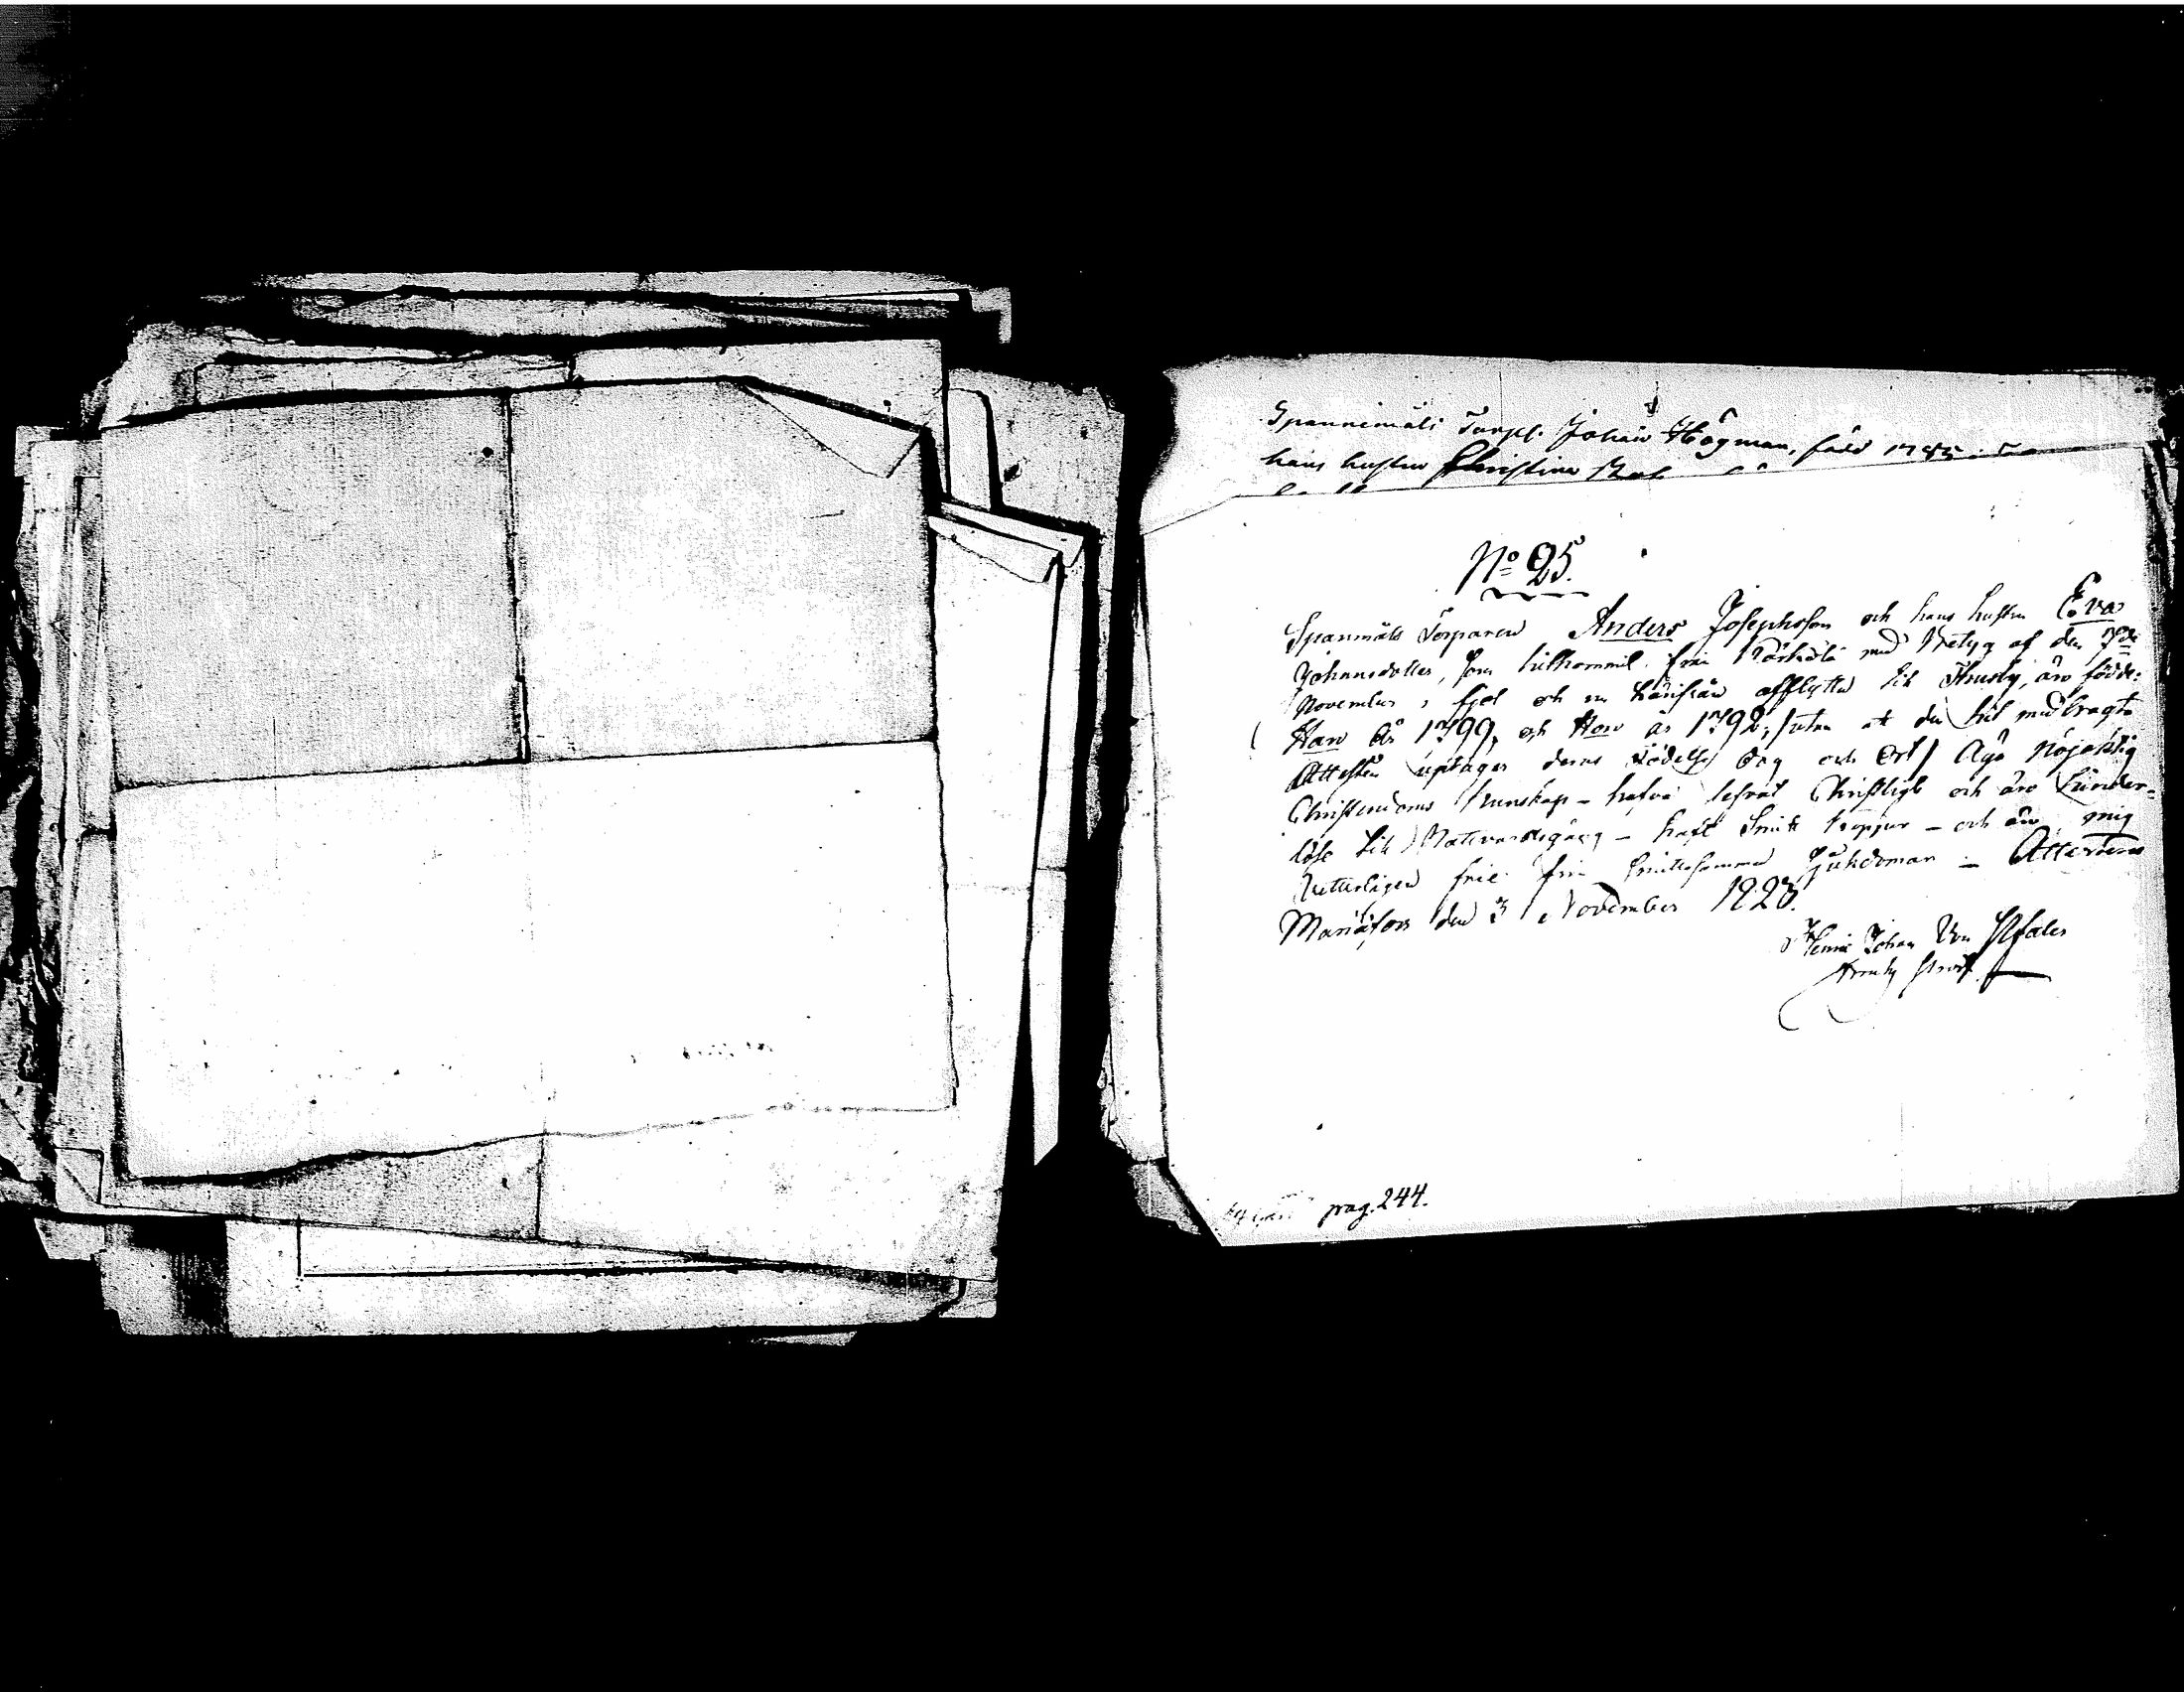 Spannemåls Torpl. Johan Högman, född 1783
hans hustru Christina
No 25.
Spanmåls Torparen Anders Josephsson och hans hustru Eva
Johannsdotter, som hitkommit från med betyg af den 7de
November, och nu härifrån afflytta till Krusby, äro födde:
Han år 1799, och Hon år 1792, /utan at den hit medbragte
Attesten uptager deras födelse dag och Ort/ Äga nöjaktig
Christendoms kunskap – hafva lefvat Christligt och äro hinder-
löse till Nattvardsgång – haft Smitt koppor – och äro, mig
vetterligen frie från smittosamma sjukdomar – Attesteras
Mariäfors den 3 November 1823.
Johan Von Pfaler
pag. 244.